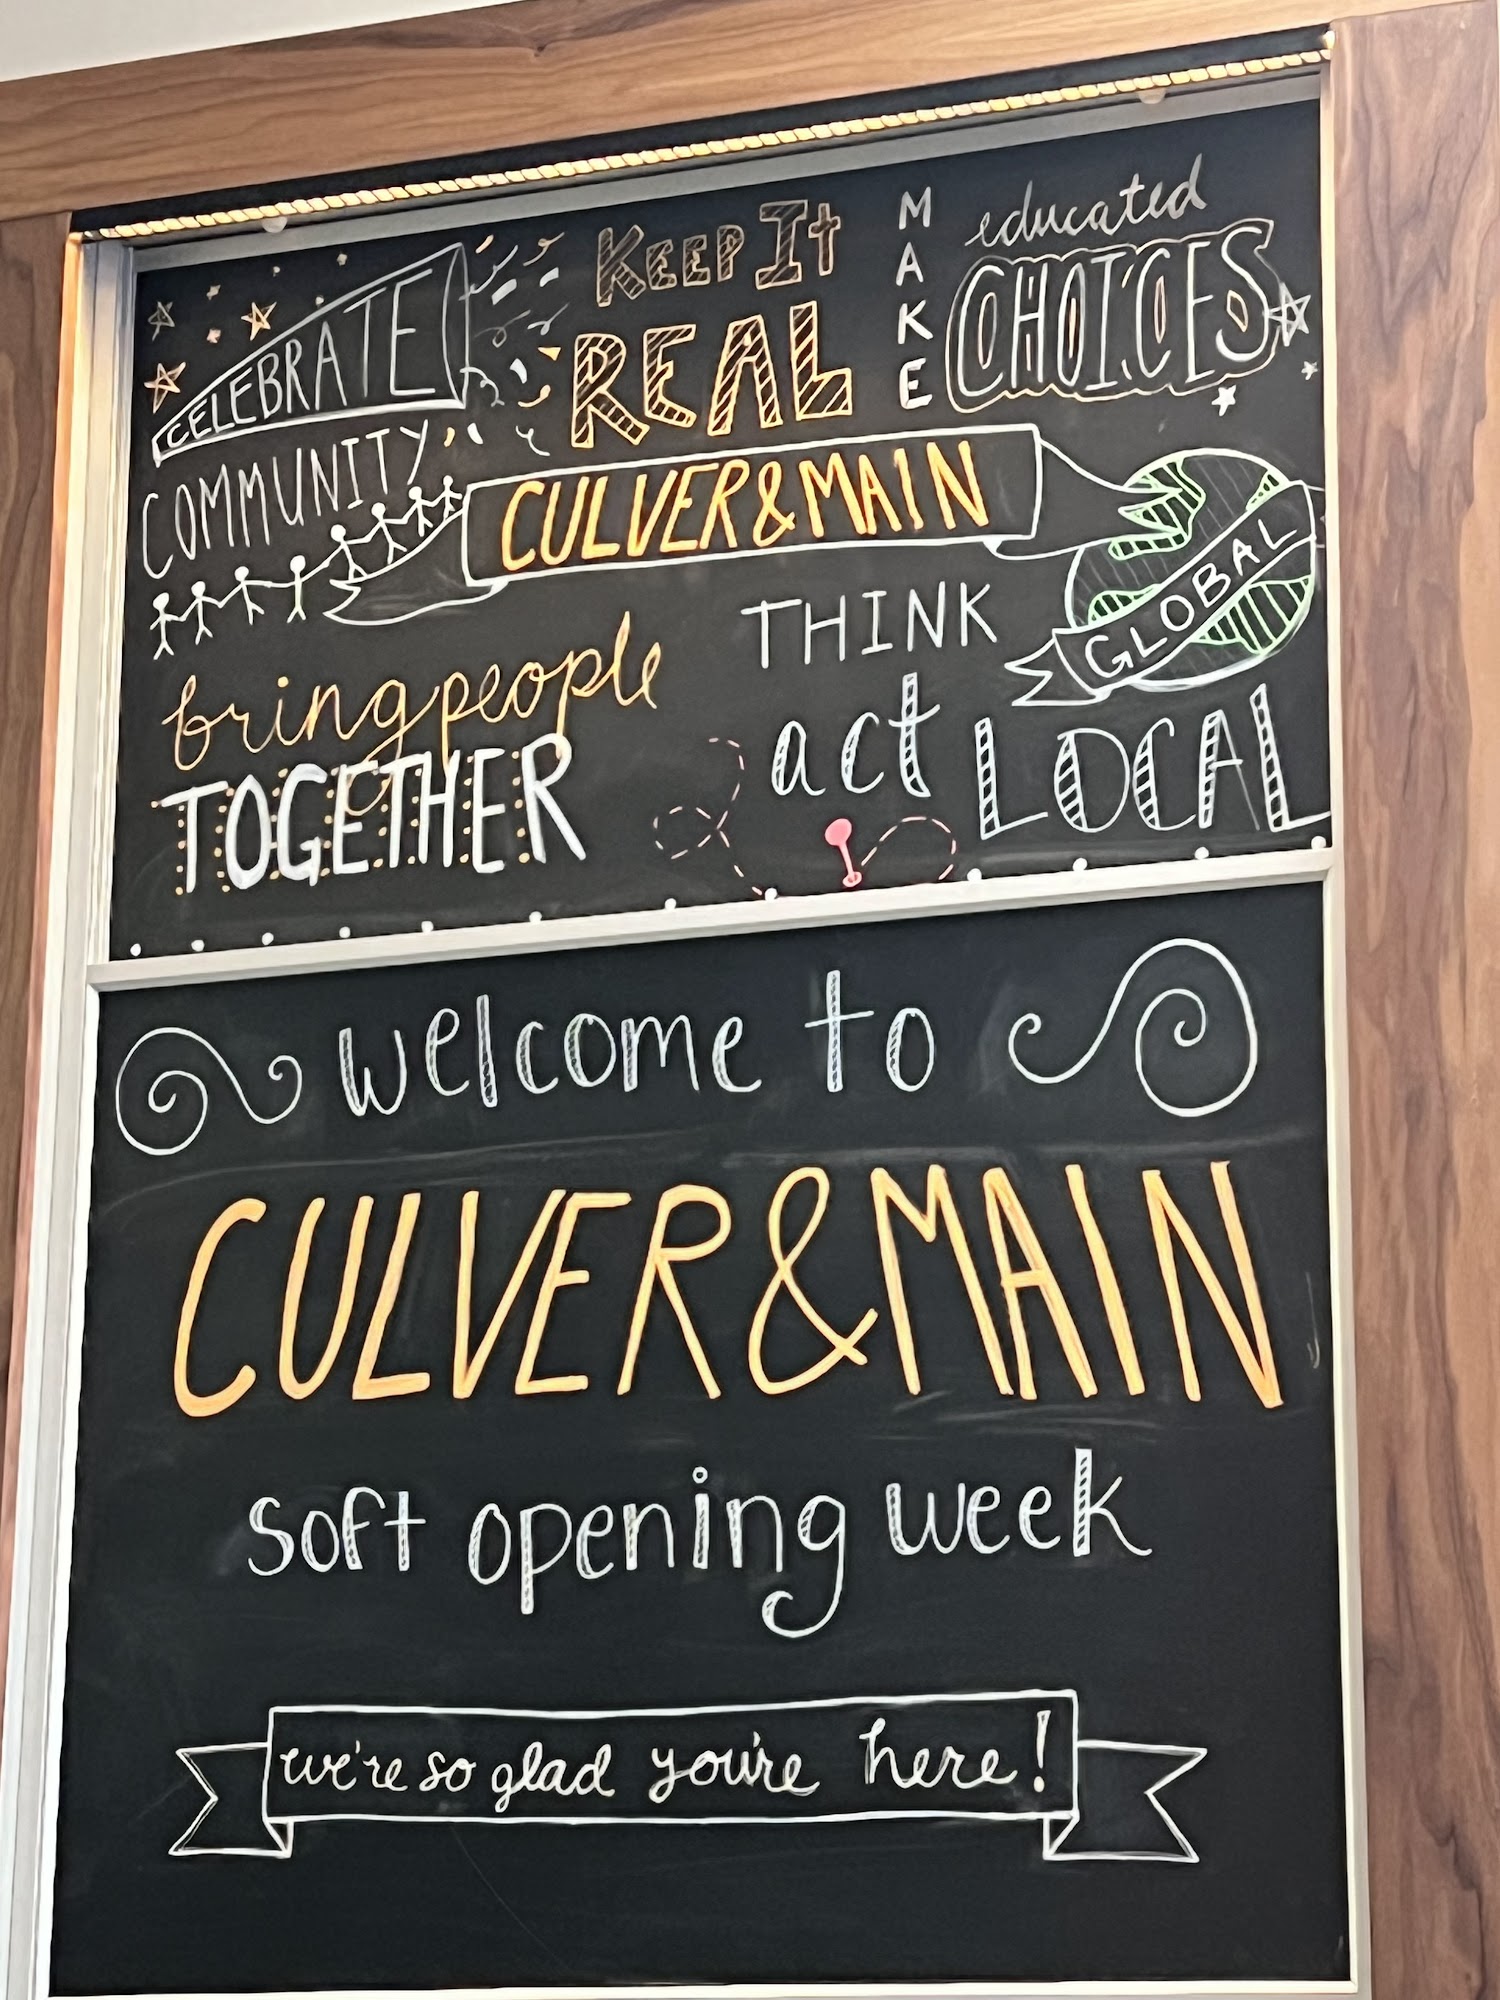 CELEBRATE
COMMUNITY
KEEP It
REAL
MAKE
educated
CHOICES
CULVER&MAIN
bring people
TOGETHER
THINK
GLOBAL
act LOCAL
welcome to
CULVER&MAIN
soft opening week
we're so glad you're here!